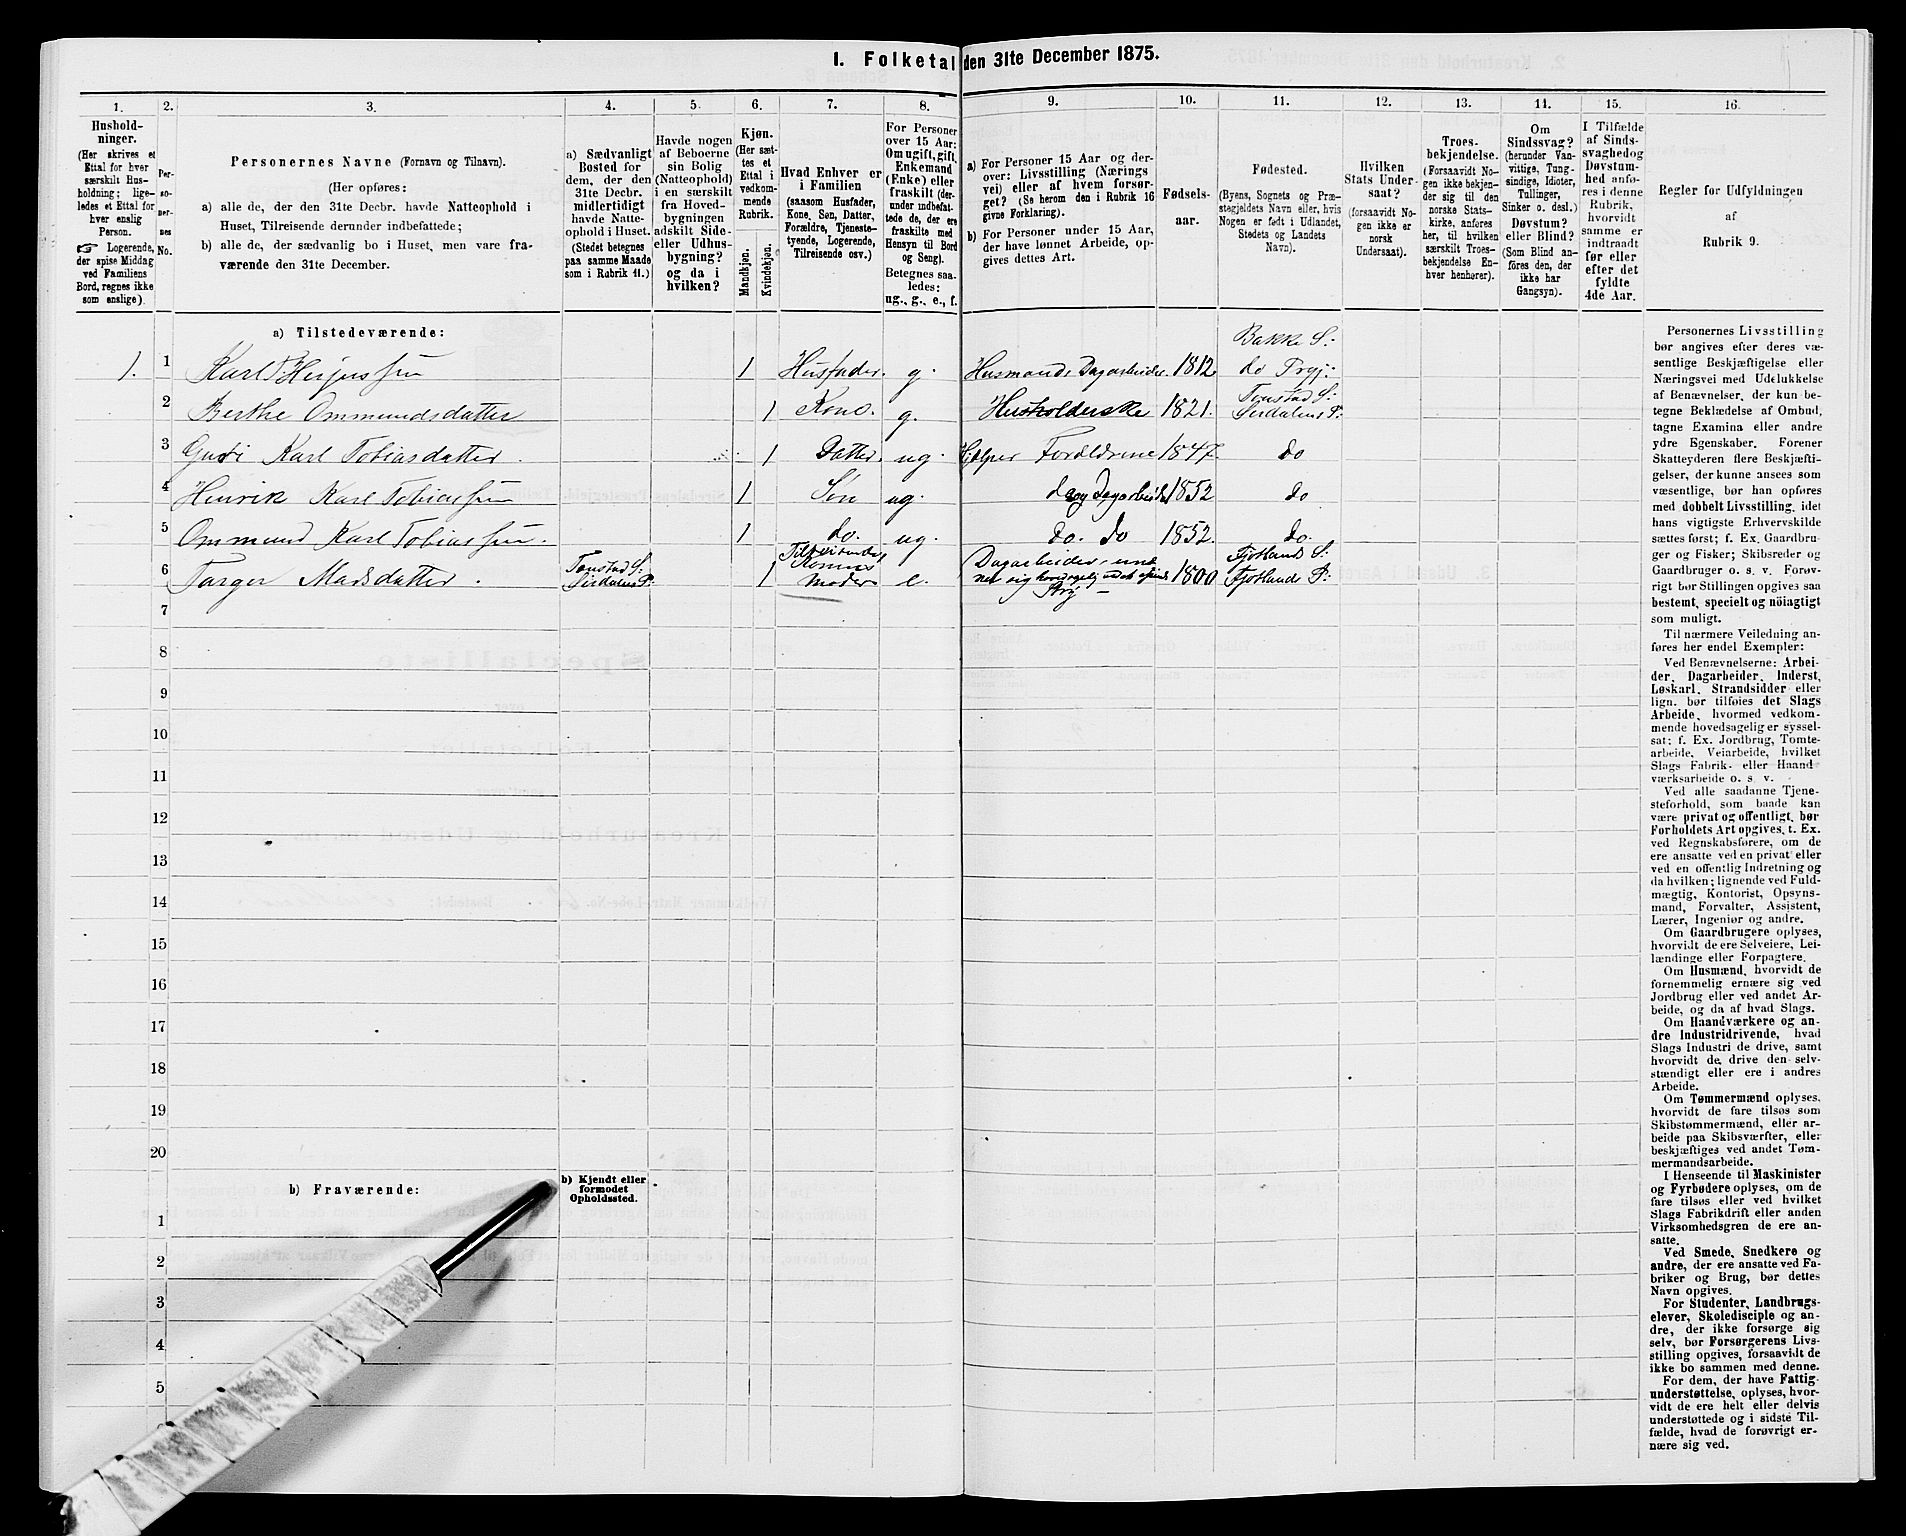 1. Folketal den 31te December 1875.
1. 2. 3. 4. 5. 6. 7. 8. 9. 10. 11. 12. 13. 14. 15. 16.
Hushold-
ninger.
(Her skrives et
Ettal for hver
særskilt Hus-
holdning; lige-
ledes et Ettal for
hver enslig
Person.
☞ Logerende,
der spise Middag
ved Familiens
Bord, regnes ikke
som enslige).
Per-
so-
ner-
nes
No.
Personernes Navne (Fornavn og Tilnavn).
(Her opføres:
a) alle de, der den 31te Decbr. havde Natteophold i
Huset, Tilreisende derunder indbefattede;
b) alle de, der sædvanlig bo i Huset, men vare fra-
værende den 31te December.
a) Sædvanligt
Bosted for
dem, der den
31te Decbr.
midlertidigt
havde Natte-
ophold i Huset.
(Stedet betegnes
paa samme Maade
som i Rubrik 11.)
Havde nogen
af Beboerne
sin Bolig
(Natteophold)
i en særskilt
fra Hoved-
bygningen
adskilt Side-
eller Udhus-
bygning?
og da i
hvilken?
Kjøn.
(Her sæt-
tes et
Ettal i
vedkom-
mende
Rubrik.
Mandkjøn.
Kvindekjøn.
Hvad Enhver er
i Familien
(saasom Husfader,
Kone, Søn, Datter,
Forældre, Tjeneste-
tyende, Logerende,
Tilreisende osv.)
For Personer
over 15 Aar:
Om ugift, gift,
Enkemand
(Enke) eller
fraskilt (der-
under indbefat-
tede de, der ere
fraskilte med
Hensyn til Bord
og Seng).
Betegnes saa-
ledes:
ug., g., e., f.
a) For Personer 15 Aar og der-
over: Livsstilling (Nærings
vei) eller af hvem forsør-
get? (Se herom den i Rubrik 16
givne Forklaring).
b) For Personer under 15 Aar,
der have lønnet Arbeide, op-
gives dettes Art.
Fødsels-
aar.
Fødested.
(Byens, Sognets og Præ-
stegjeldets Navn eller, hvis
Nogen er født i Udlandet,
Stedets og Landets
Navn).
Hvilken
Stats Under-
saat?
(forsaavidt No-
gen ikke er
norsk
Undersaat).
Troes-
bekjendelse.
(Forsaavidt No-
gen ikke bekjen-
der sig til den
norske Stats-
kirke, anføres
her, til hvilken
særskilt Troes-
bekjendelse En-
hver henhører).
Om
Sindssvag?
(herunder Van-
vittige, Tung-
sindige, Idioter,
Tullinger,
Sinker o. desl.)
Døvstum?
eller Blind?
(Som Blind an-
føres den, der
ikke har
Gangsyn).
I Tilfælde
af Sinds-
svaghed og
Døvstum-
hed anfø-
res i denne
Rubrik,
hvorvidt
samme er
indtraadt
før eller
efter det
fyldte
4de Aar.
Regler for Udfyldningen
af
Rubrik 9.
a) Tilstedeværende:
Bakke S:
1. 1 Karl T Herjussen 1 Husfader. g. Husmand, Dagarbeider. 1812 do Prgj:
Tonstad S:
2 Berthe Ommundsdatter 1 Kone. g. Husholderske 1821. Sirdalens P:
3 Guri Karl Tobiasdatter. 1 Datter. ug. Hjelper Forældrene 1847 do
4 Henrik Karl Tobiassen 1 Søn ug. do og Dagarbeide 1852 do
5 Ommund Karl Tobiassen. 1 do. ug. do. do 1852. do.
6 Targer Madsdatter. Tonstad S: Sirdalens P: 1 Tilreisende Konens Moder e. Dagarbeider, 1800 Fjotlands S: Fjotlands P:
7
8
9
10
11
12
13
14
15
16
17
18
19
20
b) Fraværende:
b) Kjendt eller
formodet
Opholdssted.
1
2
3
4
5
Personernes Livsstilling
bør angives efter deres væ-
sentlige Beskjæftigelse eller
Næringsvei med Udelukkelse
af Benævnelser, der kun be-
tegne Beklædelse af Ombud,
tagne Examina eller andre
ydre Egenskaber. Forener
Skatteyderen flere Beskjæfti-
gelser, der kunne ansees som
væsentlige, bør han opføres
med dobbelt Livsstilling, idet
hans vigtigste Erhvervskilde
sættes først; f. Ex. Gaardbru-
ger og Fisker; Skibsreder og
Gaardbruger o. s. v. Forøv-
rigt bør Stillingen opgives saa
bestemt, specielt og nöiagtigt
som muligt.
Til nærmere Veiledning an-
føres her endel Exempler:
Ved Benævnelserne: Arbei-
der, Dagarbeider, Inderst,
Løskarl, Strandsidder eller
lign. bør tilføies det Slags
Arbeide, hvormed vedkom-
mende hovedsagelig er syssel-
sat; f. Ex. Jordbrug, Tomte-
arbeide, Veiarbeide, hvilket
Slags Fabrik- eller Haand-
værksarbeide o. s. v.
Ved alle saadanne Tjene-
steforhold, som baade kan
være privat og offentligt, bør
Forholdets Art opgives, t. Ex.
ved Regnskabsførere, om de
ere ansatte ved en privat eller
ved en offentlig Indretning og
da hvilken; lignende ved Fuld-
mægtig, Kontorist, Opsyns-
mand, Forvalter, Assistent,
Lærer, Ingeniør og andre.
Om Gaardbrugere oplyses,
hvorvidt de ere Selveiere, Lei-
lændinge eller Forpagtere.
Om Husmænd, hvorvidt de
fornemmelig ernære sig ved
Jordbrug eller ved andet Ar-
beide, og da af hvad Slags.
Om Haandværkere og an-
dre Industridrivende, hvad
Slags Industri de drive, samt
hvorvidt de drive den selv-
stændigt eller ere i andres
Arbeide.
Om Tømmermænd oplyses,
hvorvidt de fare tilsøs som
Skibstømmermænd, eller ar-
beide paa Skibsværfter, eller
beskjæftiges ved andet Tøm-
mermandsarbeide.
I Henseende til Maskinister
og Fyrbødere oplyses, om de
fare tilsøs eller ved hvilket
Slags Fabrikdrift eller anden
Virksomhedsgren de ere an-
satte.
Ved Smede, Snedkere og
andre, der ere ansatte ved Fa-
briker og Brug, bør dettes
Navn opgives.
For Studenter, Landbrugs-
elever, Skoledisciple og an-
dre, der ikke forsørge sig
selv, bør Forsørgerens Livs-
stilling opgives, forsaavidt de
ikke bo sammen med denne.
For dem, der have Fattig-
understøttelse, oplyses, hvor-
vidt de ere helt eller delvis
understøttede og i sidste Til-
fælde, hvad de forøvrigt er-
nære sig ved.